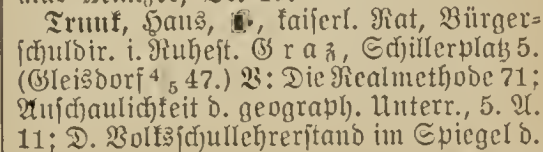 Trunk, Hans, kaiserl. Rat, Bürger=
schuldir. i. Ruhest. Graz, Schillerplatz 5.
(Gleisdorf 4 5 47.) V: Die Realmethode 71;
Anschaulichkeit d. geograph. Unterr., 5. A.
11; D. Volksschullehrerstand im Spiegel d.